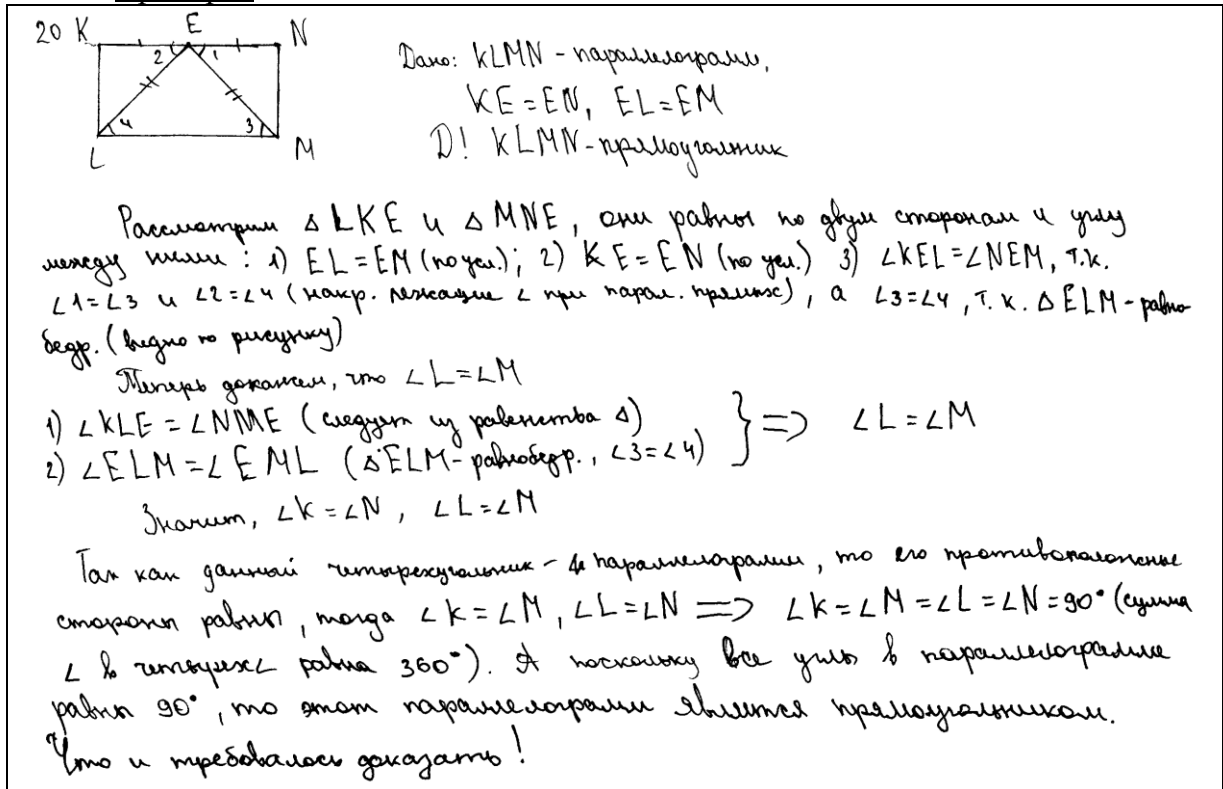 20 K E N
2 1
4 3
L M
Дано: KLMN - параллелограмм,
KE = EN, EL = EM
D! KLMN - прямоугольник
Рассмотрим Δ LKE и Δ MNE, они равны по двум сторонам и углу
между ними: 1) EL = EM (по усл.); 2) KE = EN (по усл.) 3) ∠KEL = ∠NEM, т.к.
∠1 = ∠3 и ∠2 = ∠4 (накр. лежащие ∠ при парал. прямых), а ∠3 = ∠4, т.к. Δ ELM - равно
бедр. (видно по рисунку)
Теперь докажем, что ∠L = ∠M
1) ∠KLE = ∠NME (следует из равенства Δ)
2) ∠ELM = ∠EML (ΔELM - равнобедр., ∠3 = ∠4) } => ∠L = ∠M
Значит, ∠K = ∠N, ∠L = ∠M
Так как данный четырехугольник - параллелограмм, то его противоположные
стороны равны, тогда ∠K = ∠M, ∠L = ∠N => ∠K = ∠M = ∠L = ∠N = 90° (сумма
∠ в четырех∠ равна 360°). А поскольку все углы в параллелограмме
равны 90°, то этот параллелограмм является прямоугольником.
Что и требовалось доказать!